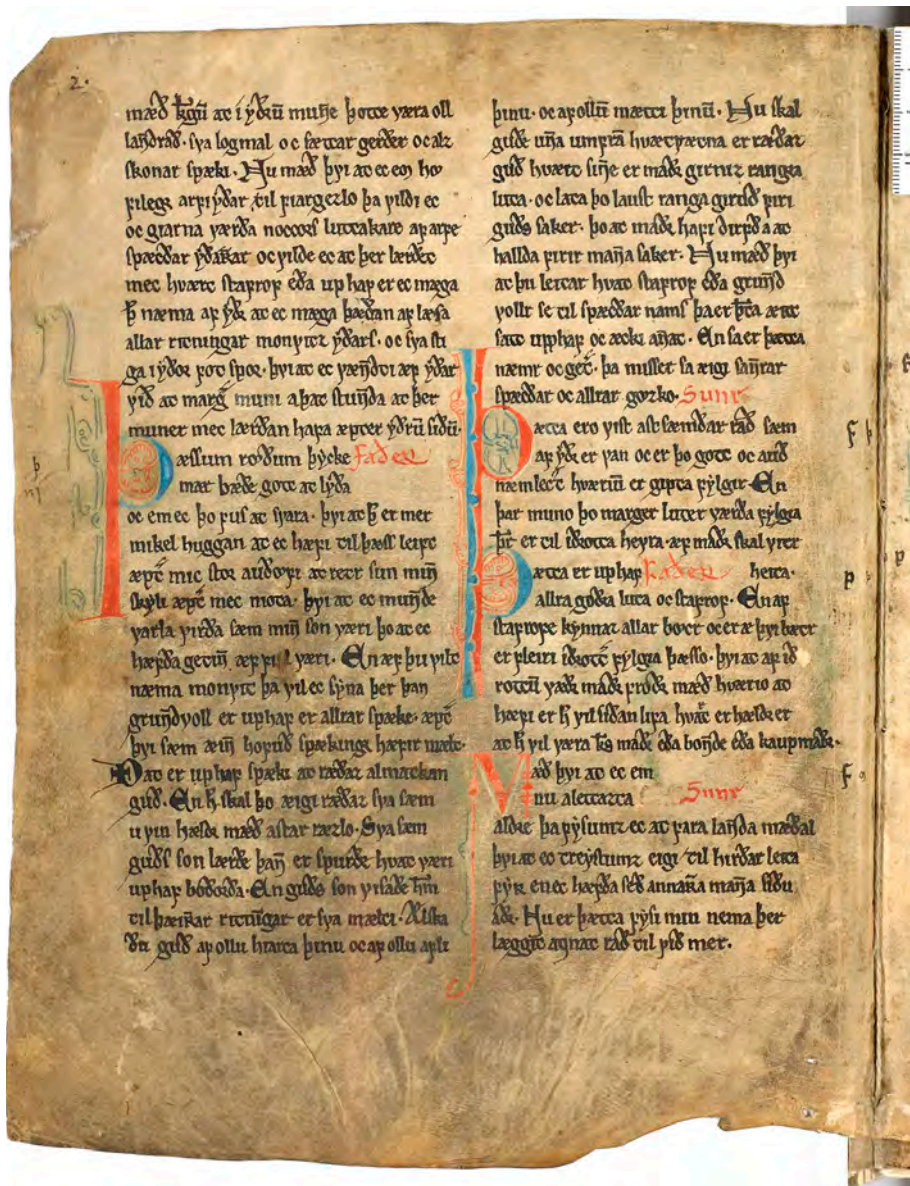 2.
mæð kgū at i yðrū muñe þotte væra oll
lanðrað. sva logmal oc sættar gerðer oc alz
skonar spæki. Nu mæð þvi at ec em ho
rilegr arvi yðar til fiargezlo þa vildi ec
oc giarna værða noccors luttakare af arfe
spæcðar yðarrar oc vilde ec at þer lærðet
mec hvært stafrof eða up haf er ec mæga
þ næma af yðr at ec mæga þæðan af læsa
allar ritningar monvitz yðars. oc sva sti
ga i yðor fot spor. þvi at ec væñdti æf yðar
við at marg muni a þat stunda at þer
muner mec lærðan hafa æpter yðrū siðū.
Þæssum rœðum þycke Faðer
mær bæðe gott at lyða
oc em ec þo fus at svara. þvi at þ er mer
mikel huggan at ec hæfi til þæss leift
æpt mic stor auðæfi at rettr sun miñ
skyli æpt mec niota. þvi at ec munde
varla virða sæm miñ son væri þo at ec
hæfða getiñ æf fifl væri. En æf þu vilt
næma monvit þa vil ec syna þer þan
grundvoll er uphaf er allrar spæke. æpt
þvi sæm æiñ hofuð spækingr hæfir mælt.
Þat er uphaf spæki at ræðaz almatkan
guð. En h̄ skal þo æigi ræðaz sva sæm
u vin hældr mæð astar ræzlo. Sva sæm
guðs son lærðe þañ er spurðe hvat væri
uphaf boðorða. En guðs son visaðe hm̄
til þæirrar ritningar er sva mælti. Ælska
ðu guð af ollu hiarta þinu oc af ollu afli
þinu. oc af ollū mætti þinū. Nu skal
guðe uña umfrā hvætvætna er ræðaz
guð hvært siñe er maðr girniz rangra
luta. oc lata þo laust ranga girnð firi
guðs saker. þo at maðr hafi dirfð a at
hallda firir maña saker. Nu mæð þvi
at þu leitar hvat stafrof eða grunð
vollr se til spæcðar nams þa er þta rett
satt upphaf oc æcki añat. En sa er þætta
næmr oc get. þa misser sa æigi sañrar
spæcðar oc allrar gozko. Sunr
Þætta ero vist ast sæmðar rað sæm
af yðr er van oc er þo gott oc auð
næmlect hværiū er gipta fylgir. En
þar muno þo marger luter værða fylgia
þr̄ er til iðrotta heyra. æf maðr skal vitr
heita.
Þætta er uphaf Faðer
allra goðra luta oc stafrof. En af
stafrofe kynnaz allar bocr oc er æ þvi bætr
er fleiri iðrott fylgia þæsso. þvi at af ið
rottū værðr maðr froðr mæð hværio at
hæfi er h̄ vil siðan lifa hvat er hældr er
at h̄ vil væra kgs maðr eða bonðe eða kaupmaðr.
Mæð þvi at ec em
nu a lettazta Sunr
aldre þa fysumz ec at fara landa mæðal
þvi at ec treystumz eigi til hirðar leita
fyrr en ec hæfða seð annarra maña siðu
aðr. Nu er þætta fysi min nema þer
læggit annat rað til við mer.